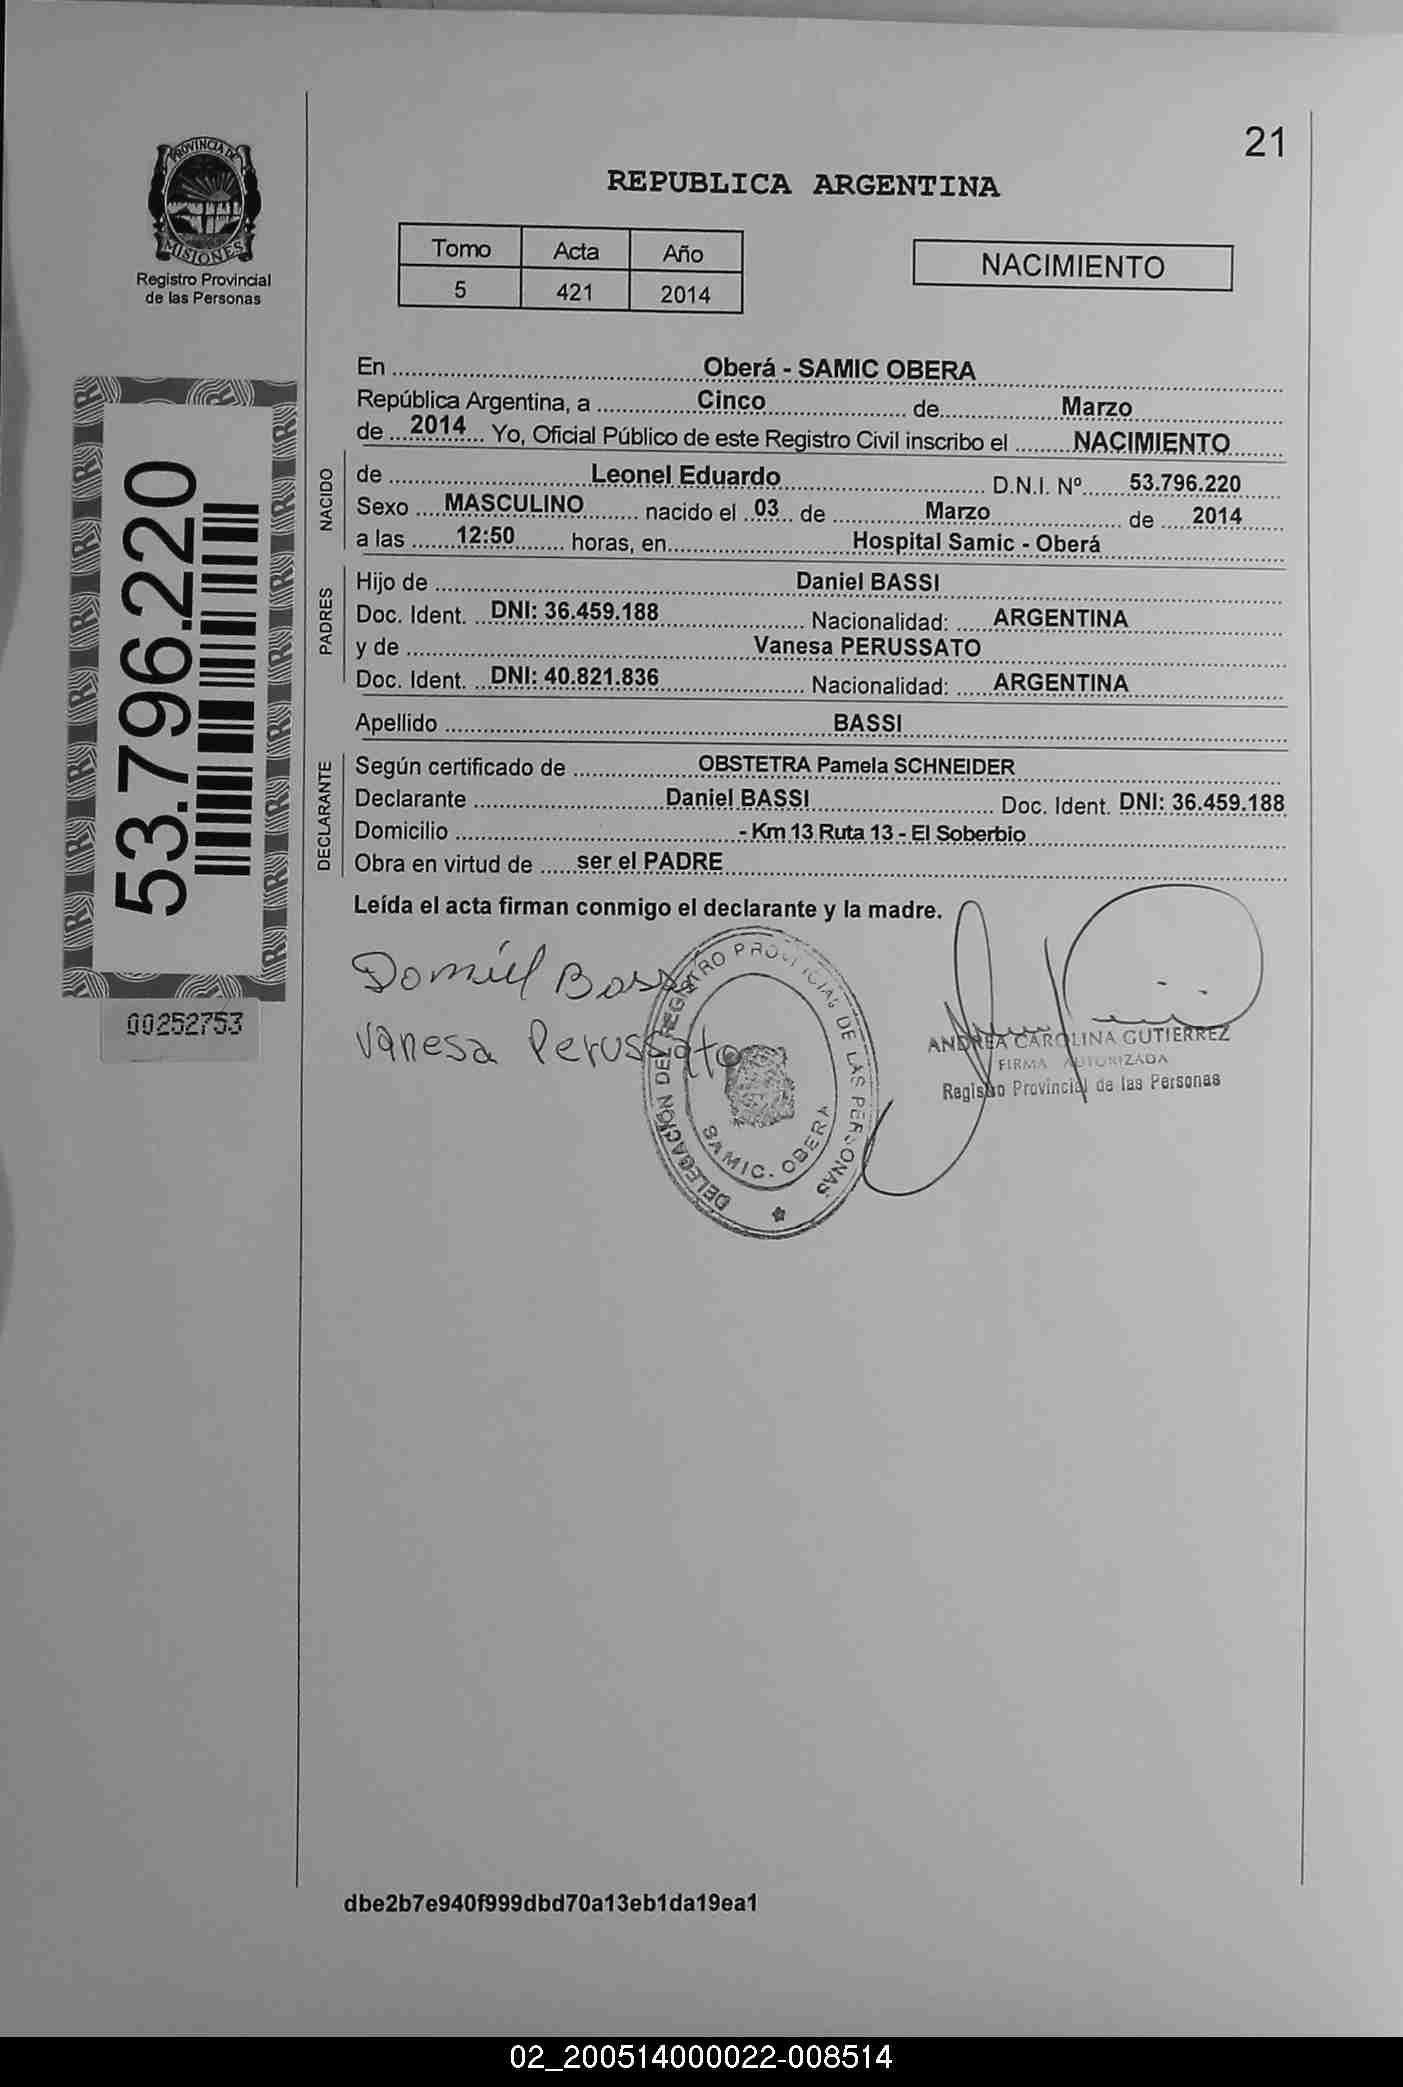 21
REPUBLICA ARGENTINA
PROVINCIA DE
MISIONES
Registro Provincial
de las Personas
Tomo Acta Año
5 421 2014
NACIMIENTO
En Oberá - SAMIC OBERA
República Argentina, a Cinco de Marzo
de 2014 Yo, Oficial Público de este Registro Civil inscribo el NACIMIENTO
NACIDO
de Leonel Eduardo D.N.I. Nº 53.796.220
Sexo MASCULINO nacido el 03 de Marzo de 2014
a las 12:50 horas, en Hospital Samic - Oberá
PADRES
Hijo de Daniel BASSI
Doc. Ident. DNI: 36.459.188 Nacionalidad: ARGENTINA
y de Vanesa PERUSSATO
Doc. Ident. DNI: 40.821.836 Nacionalidad: ARGENTINA
Apellido BASSI
DECLARANTE
Según certificado de OBSTETRA Pamela SCHNEIDER
Declarante Daniel BASSI Doc. Ident. DNI: 36.459.188
Domicilio - Km 13 Ruta 13 - El Soberbio
Obra en virtud de ser el PADRE
Leída el acta firman conmigo el declarante y la madre.
53.796.220
00252753
Daniel Bassi
Vanesa Perussato
DELEGACIÓN DEL REGISTRO PROVINCIAL DE LAS PERSONAS
SAMIC. OBERA
ANDREA CAROLINA GUTIERREZ
FIRMA AUTORIZADA
Registro Provincial de las Personas
dbe2b7e940f999dbd70a13eb1da19ea1
02_200514000022-008514